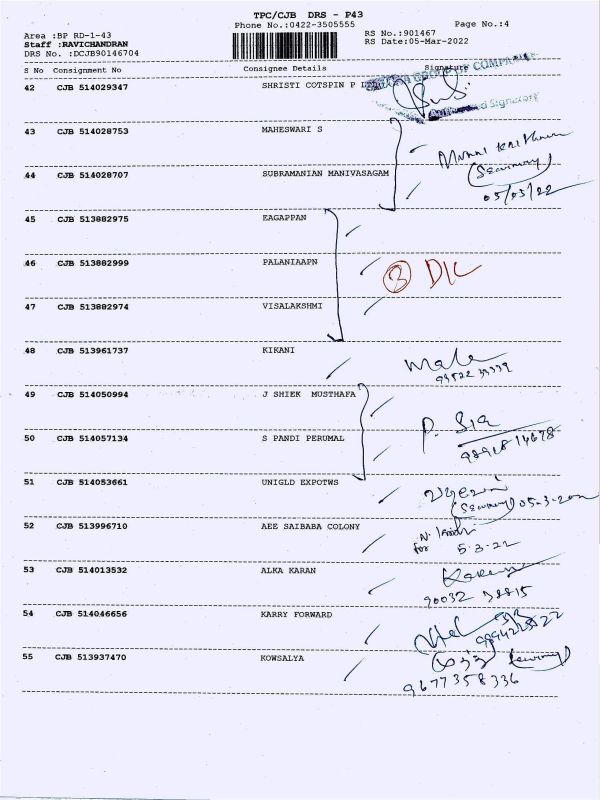 TPC/CJB DRS - P43
Phone No.:0422-3505555 Page No.:4
Area :BP RD-1-43 RS No.:901467
Staff :RAVICHANDRAN RS Date:05-Mar-2022
DRS No. :DCJB90146704
S No Consignment No Consignee Details Signature
42 CJB 514029347 SHRISTI COTSPIN P
GROUP OF COMPANIES
Authorised Signatory
43 CJB 514028753 MAHESWARI S
(Security)
44 CJB 514028707 SUBRAMANIAN MANIVASAGAM
05/03/22
45 CJB 513882975 EAGAPPAN
46 CJB 513882999 PALANIAAPN
3 D/C
47 CJB 513882974 VISALAKSHMI
48 CJB 513961737 KIKANI
Mala
49 CJB 514050994 J SHIEK MUSTHAFA
50 CJB 514057134 S PANDI PERUMAL
51 CJB 514053661 UNIGLD EXPOTWS
(Security) 05-3-2022
52 CJB 513996710 AEE SAIBABA COLONY
for 5-3-22
53 CJB 514013532 ALKA KARAN
54 CJB 514046656 KARRY FORWARD
55 CJB 513937470 KOWSALYA
9677358336